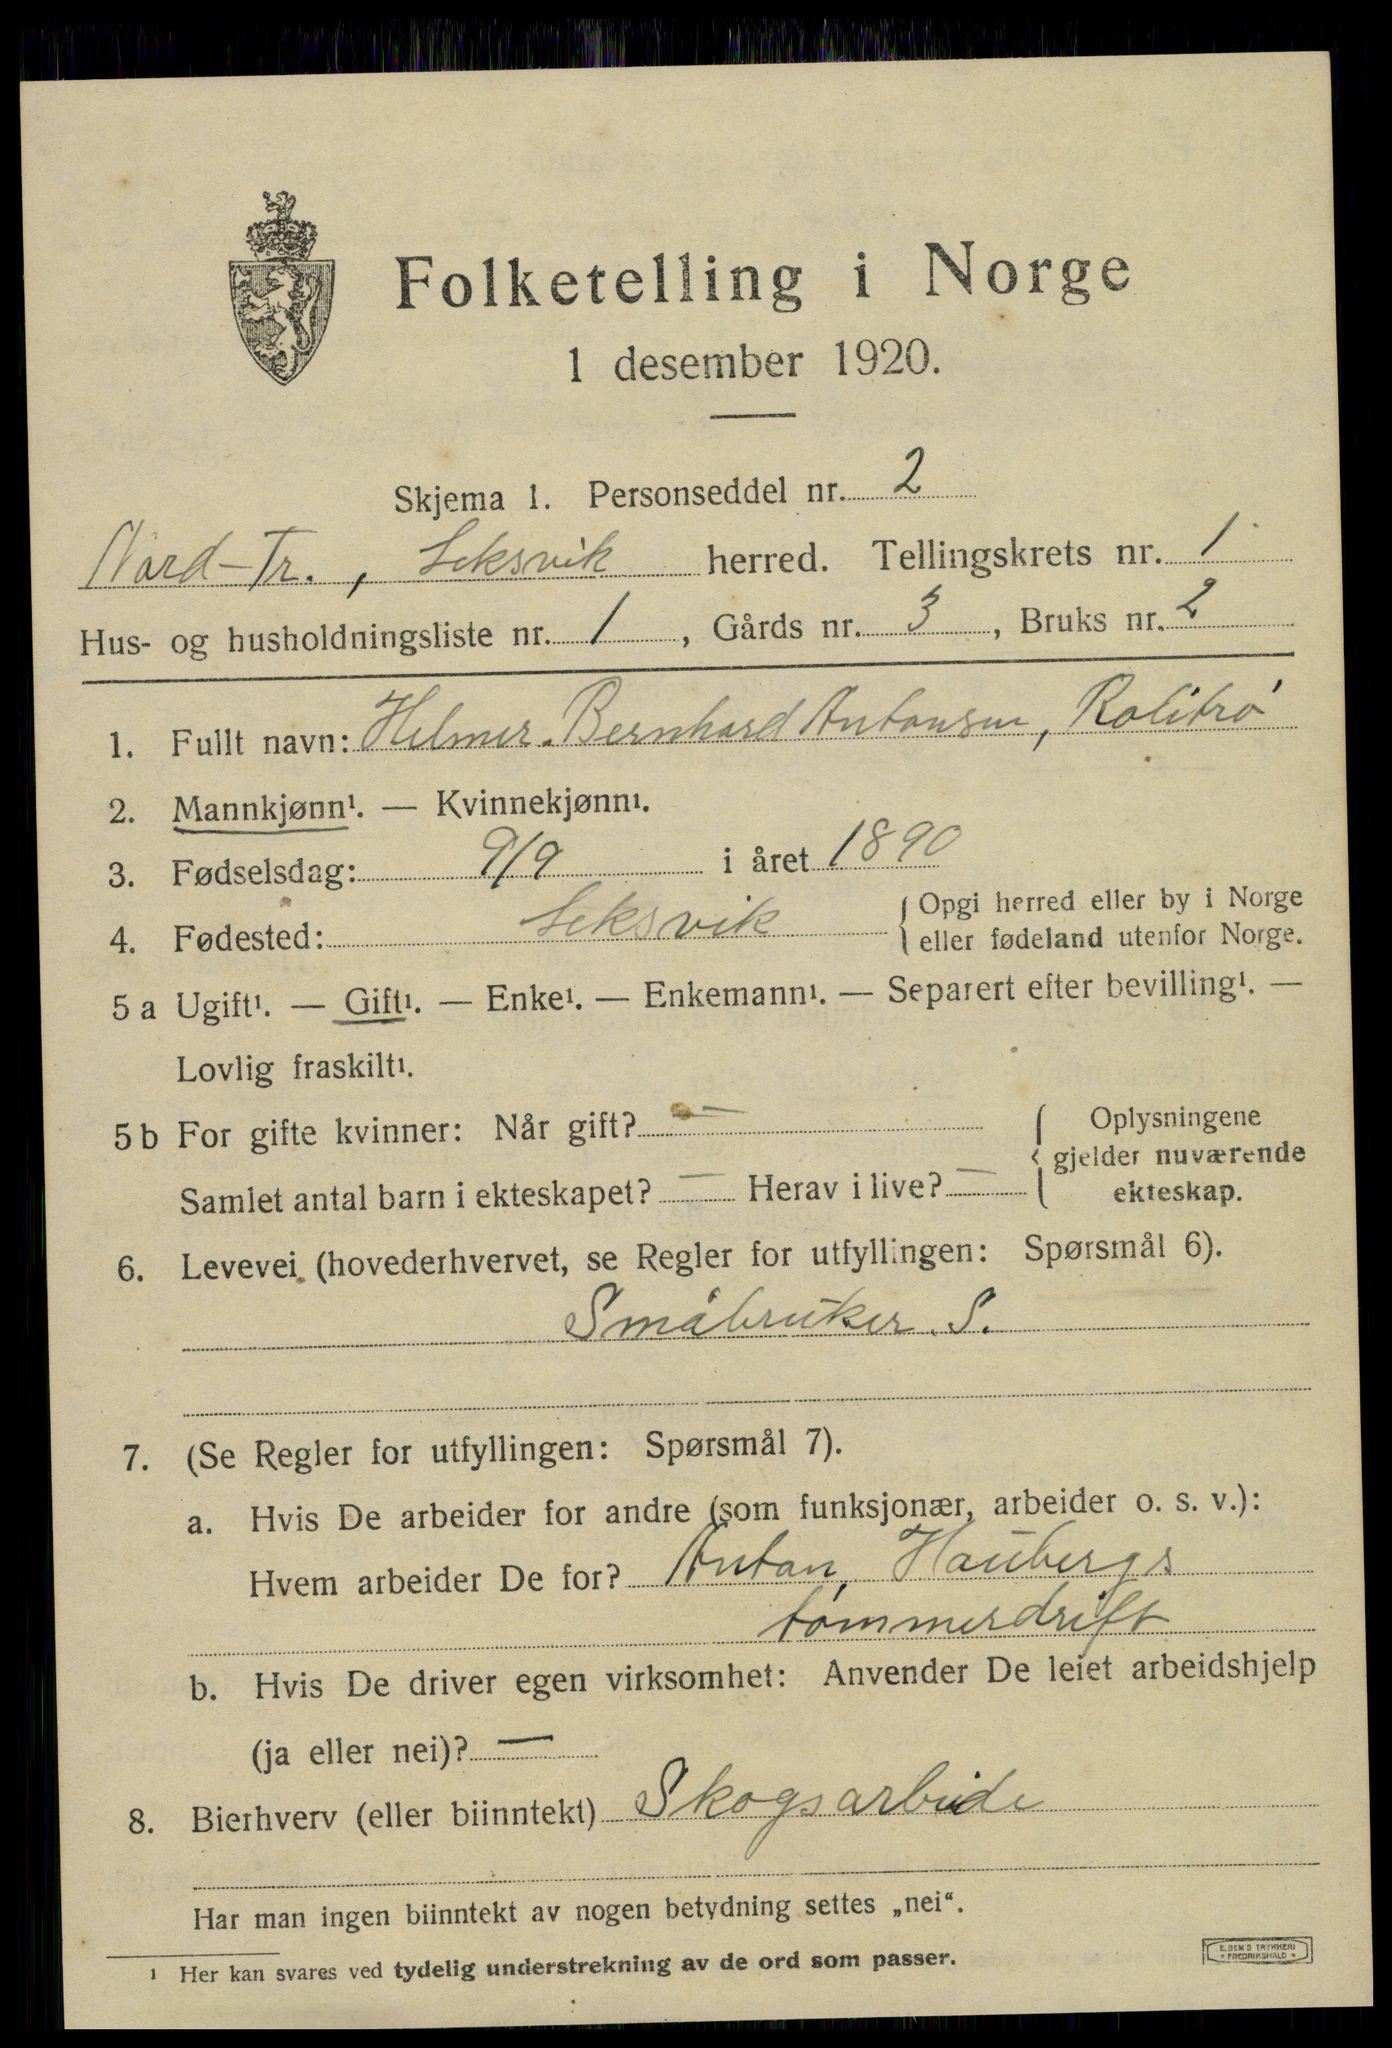 Folketelling i Norge
1 desember 1920.
Skjema 1. Personseddel nr. 2
Nord-Tr., Leksvik herred. Tellingskrets nr. 1
Hus- og husholdningsliste nr. 1, Gårds nr. 3, Bruks nr. 2
1. Fullt navn: Helmer Bernhard Antonsen, Rolitrø
2. Mannkjønn¹. — Kvinnekjønn¹.
3. Fødselsdag: 9/9 i året 1890
4. Fødested: Leksvik { Opgi herred eller by i Norge
eller fødeland utenfor Norge.
5 a Ugift¹. — Gift¹. — Enke¹. — Enkemann¹. — Separert efter bevilling¹. —
Lovlig fraskilt¹.
5 b For gifte kvinner: Når gift? — { Oplysningene
gjelder nuværende
Samlet antal barn i ekteskapet? — Herav i live? — ekteskap.
6. Levevei (hovederhvervet, se Regler for utfyllingen: Spørsmål 6).
Småbruker. S.
7. (Se Regler for utfyllingen: Spørsmål 7).
a. Hvis De arbeider for andre (som funksjonær, arbeider o. s. v.):
Hvem arbeider De for? Anton Haubergs
tømmerdrift
b. Hvis De driver egen virksomhet: Anvender De leiet arbeidshjelp
(ja eller nei)? —
8. Bierhverv (eller biinntekt) Skogsarbeide
Har man ingen biinntekt av nogen betydning settes „nei“.
¹ Her kan svares ved tydelig understrekning av de ord som passer.
E. SEM'S TRYKKERI
FREDRIKSHALD